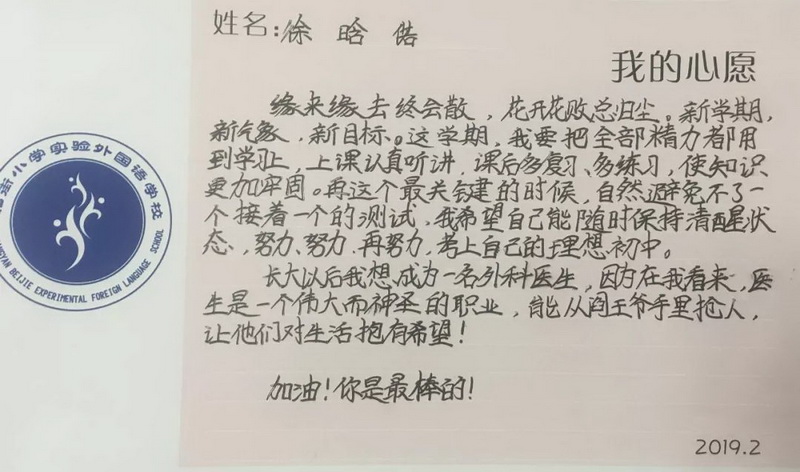 姓名:徐晗偌
我的心愿
缘来缘去终会散，花开花败总归尘。新学期，
新气象，新目标。这学期，我要把全部精力都用
到学习上，上课认真听讲，课后多复习、多练习，使知识
更加牢固。再这个最关键的时候，自然避免不了一
个接着一个的测试，我希望自己能随时保持清醒状
态，努力、努力、再努力，考上自己的理想初中。
长大以后我想成为一名外科医生，因方在我看来，医
生是一个伟大而神圣的职业，能从阎王爷手里抢人，
让他们对生活抱有希望！
加油！你是最棒的！
2019.2
街小学实验外国语学校
BEIJIE EXPERIMENTAL FOREIGN LANGUAGE SCHOOL